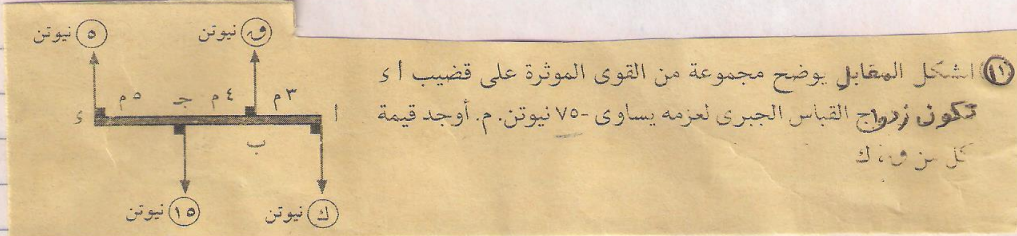 (١١) الشكل المقابل يوضح مجموعة من القوى الموثرة على قضيب أ ء
تكون زدواج القباس الجبرى لعزمه يساوى -٧٥ نيوتن. م. أوجد قيمة
كل من ق ، ك
٥ نيوتن
ق نيوتن
٥ م جـ ٤ م ٣ م
ء أ
ب
١٥ نيوتن
ك نيوتن